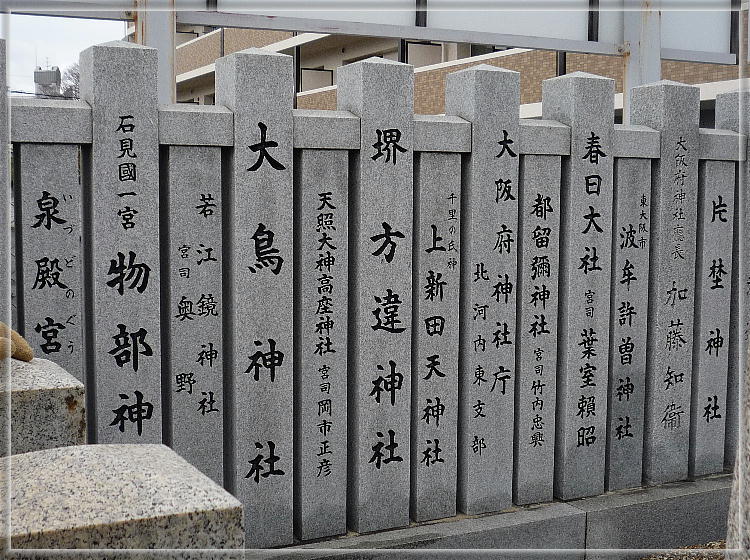 片埜神社
大阪府神社庁長
加藤知衞
東大阪市
波牟許曽神社
春日大社
宮司
葉室頼昭
都留彌神社
宮司
竹内忠興
大阪府神社庁
北河内東支部
千里の氏神
上新田天神社
堺方違神社
天照大神高座神社
宮司
岡市正彦
大鳥神社
若江鏡神社
宮司
奥野
石見國一宮
物部神
泉殿宮
いづどのぐう